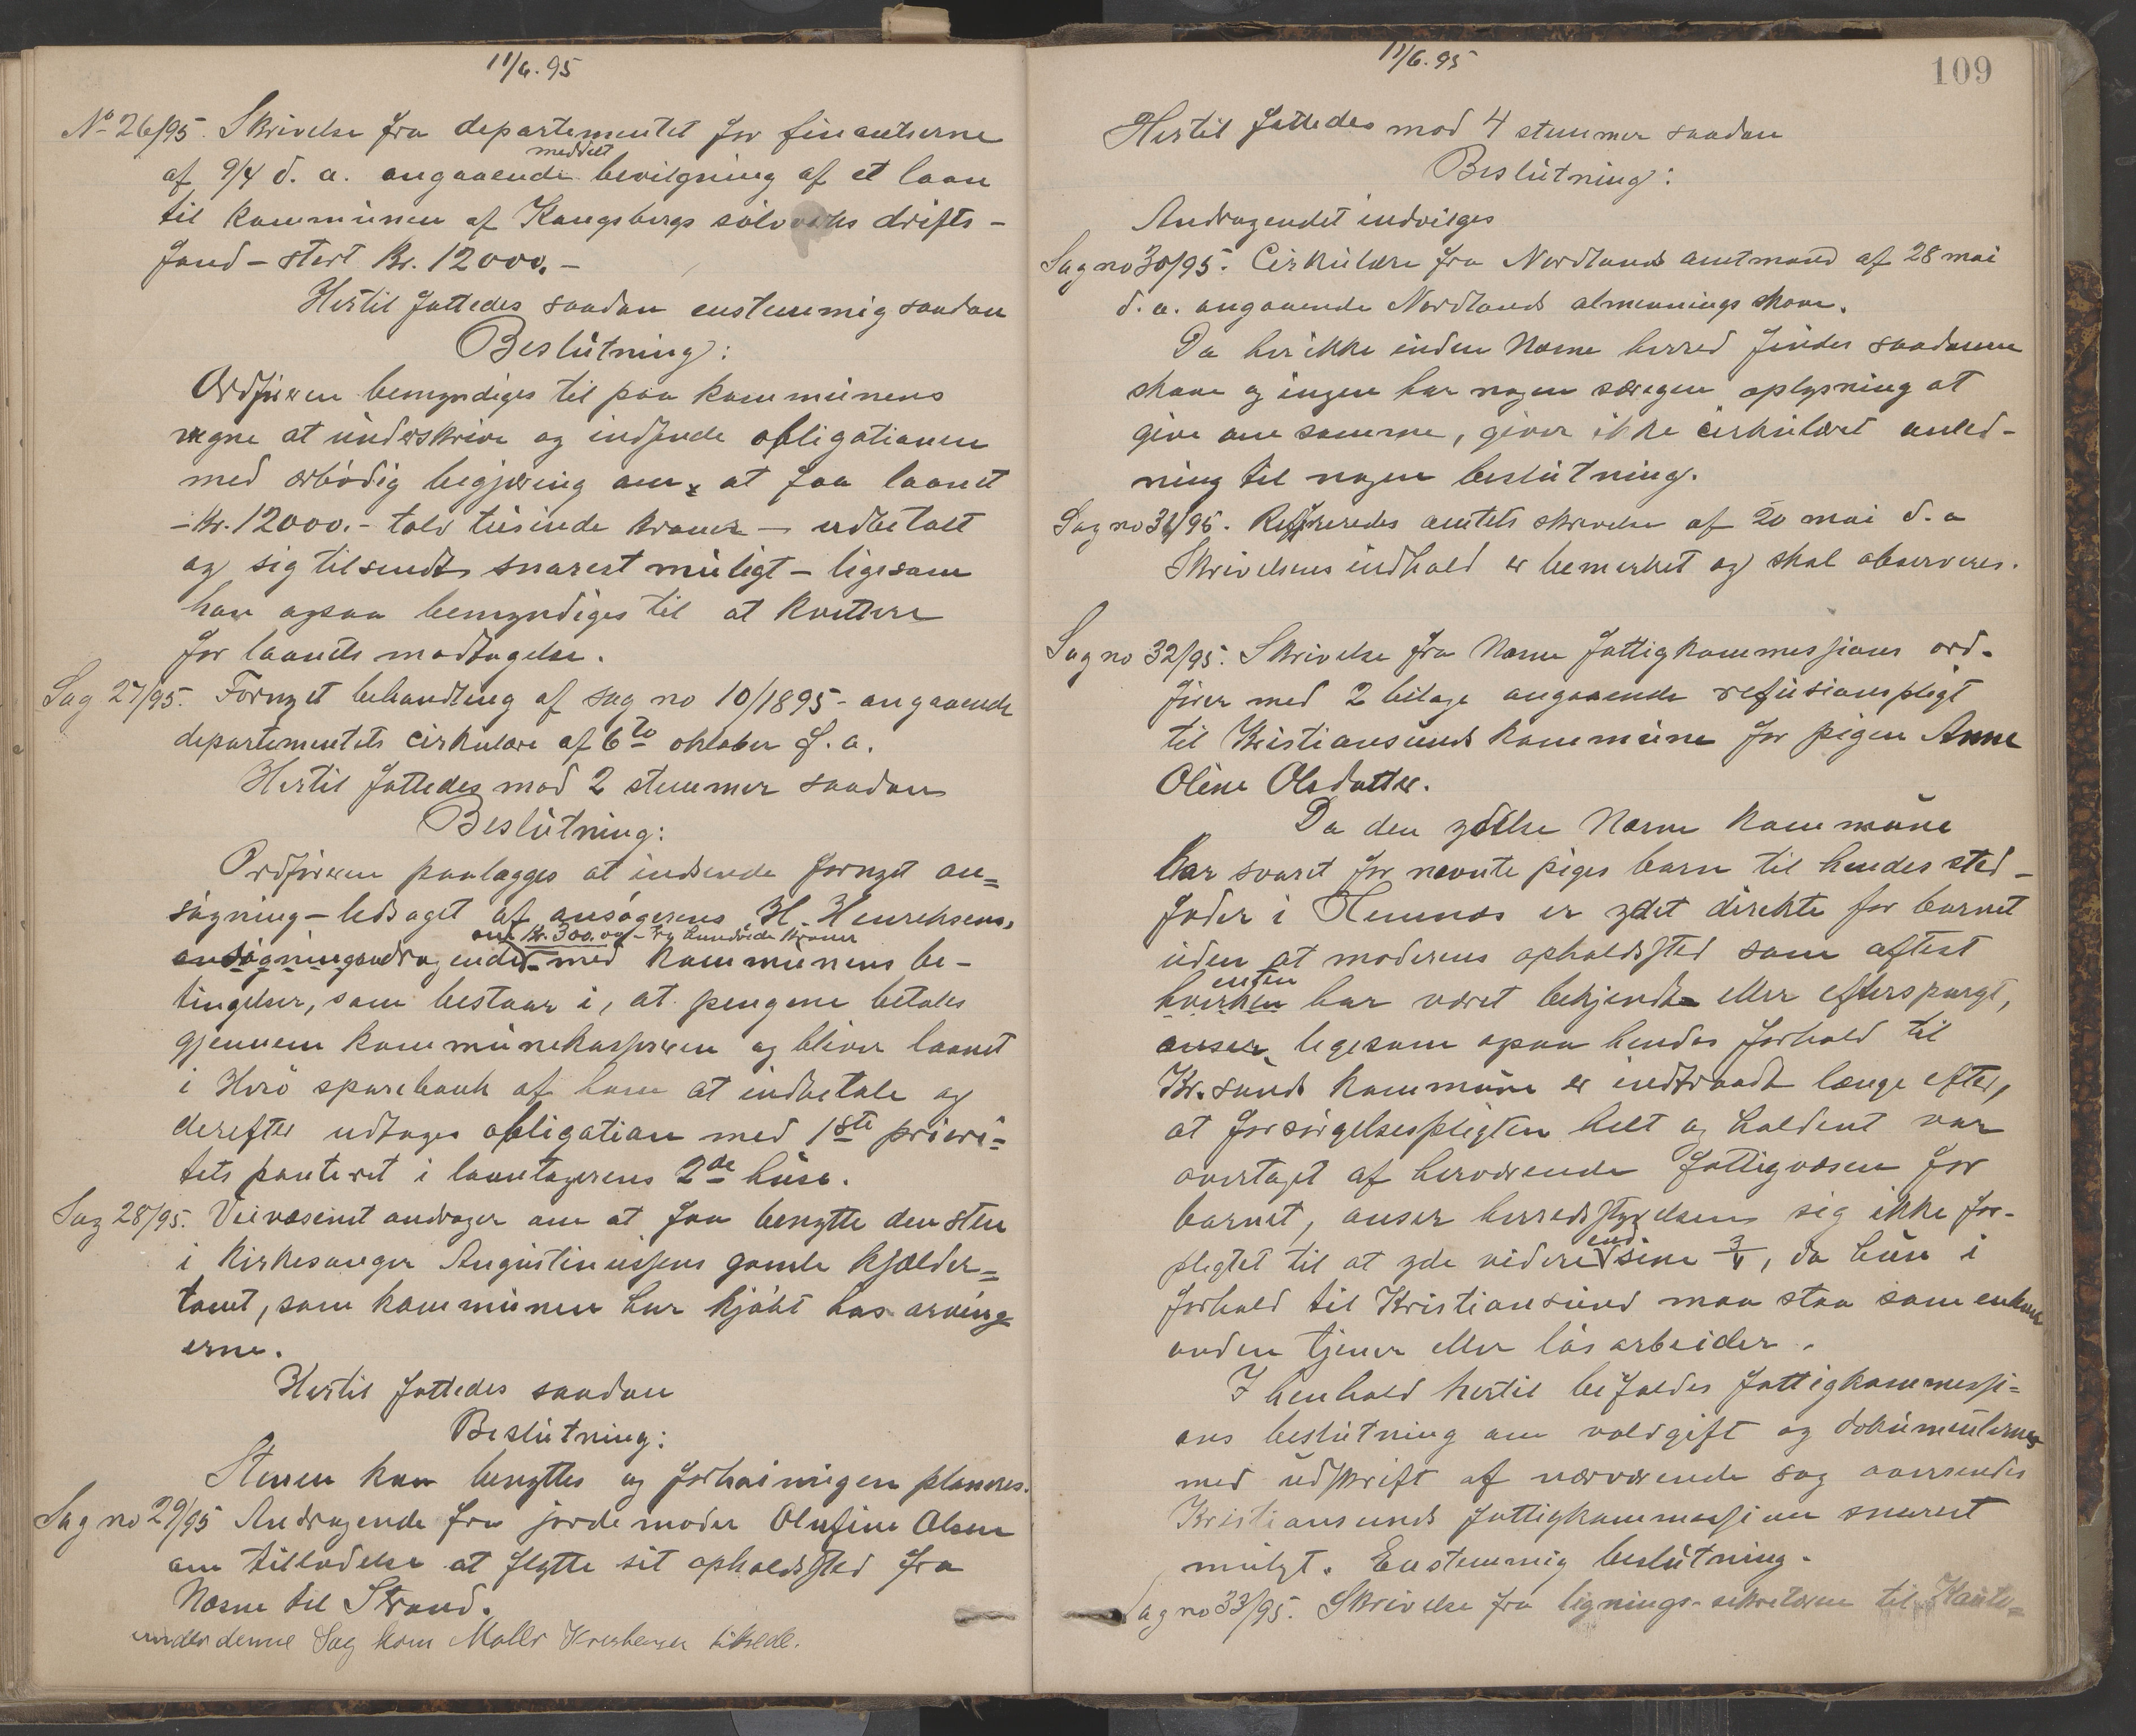 11/6.95
No 26/95. Skrivelse fra departementet for finantserne
af 9/4 d. a. angaaende meddelt bevilgning af et laan
til kommunen af Kongsbergs sølvverks drifts-
fond – stort kr. 12000.–
Hertil fattedes saadan enstemmig saadan
Beslutning:
Ordføreren bemyndiges til paa kommunens
vegne at underskrive og indsende obligationen
med ærbødig begjæring om, at faa laanet
– kr. 12000.– tolv tusinde kroner – udbetalt
og sig tilsendt snarest muligt – ligesom
han ogsaa bemyndiges til at kvittere
for laanets modtagelse.
Sag 27/95. Fornyet behandling af sag no 10/1895 – angaaende
departementets cirkulære af 6te oktober f. a.
Hertil fattedes mod 2 stemmer saadan
Beslutning:
Ordføreren paalægges at indsende fornyet an=
søgning – ledsaget af ansøgerens H. Henriksens,
om kr. 300.00 – tre hundrede kroner
ansøgningandragende – med kommunens be-
tingelser, som bestaar i, at pengene betales
gjennem kommunekassereren og bliver laanet
i Herø sparebank af ham at indbetale og
derefter udtages obligation med 1ste priori=
tets panteret i laantagerens 2de huse.
Sag 28/95. Veivæsenet andrager om at faa benytte den sten
i kirkesanger Augustinussens gamle kjælder=
tomt, som kommunen har kjøbt hos arving
erne.
Hertil fattedes saadan
Beslutning:
Stenen kan benyttes og forhøiningen planeres.
Sag no 29/95 Andragende fra jordemoder Olufine Olsen
om tilladelse at flytte sit opholdssted fra
Næsne til Strand.
under denne Sag kom Møller tilstede.
11/6.95
109
Hertil fattedes mod 4 stemmer saadan
Beslutning:
Andragendet indvilges
Sag no 30/95. Cirkulære fra Nordlands amtmand af 28 mai
d. a. angaaende Nordlands almennings skove.
Da her ikke inden Næsne herred findes saadanne
skove og ingen har nogen særegen oplysning at
give om samme, giver ikke cirkulæret anled-
ning til nogen beslutning.
Sag no 31/95. Refereredes amtets skrivelse af 20 mai d. a
Skrivelsens indhold er bemerket og skal observeres.
Sag no 32/95. Skrivelse fra Næsne fattigkommessions ord-
fører med 2 bilage angaaende refusionspligt
til Kristiansunds kommune for pigen Anne
Oline Olsdatter.
Da den ydelse Næsne kommune
har svaret for nevnte piges barn til hendes sted-
fader i Hemnæs er ydet direkte for barnet
uden at moderens opholdssted som oftest
enten
hverken har været bekjendt eller efterspurgt,
anser, ligesom ogsaa hendes forhold til
Kr.sunds kommune er indtraadt længe efter,
at forsørgelsespligten helt og holdent var
overtaget af herværende fattigvæsen for
barnet, anser herredsstyrelsen sig ikke for-
pligtet til at yde videre end sine 3/4, da hun i
forhold til Kristiansund maa staa som enhver
anden tjener eller løsarbeider.
I henhold hertil bifaldes fattigkommessi=
ons beslutning om voldgift og dokumenterne
med udskrift af nærværende sag oversendes
Kristiansunds fattigkommession snarest
muligt. Enstemmig beslutning.
Sag no 33/95. Skrivelse fra lignings-sekretæren til